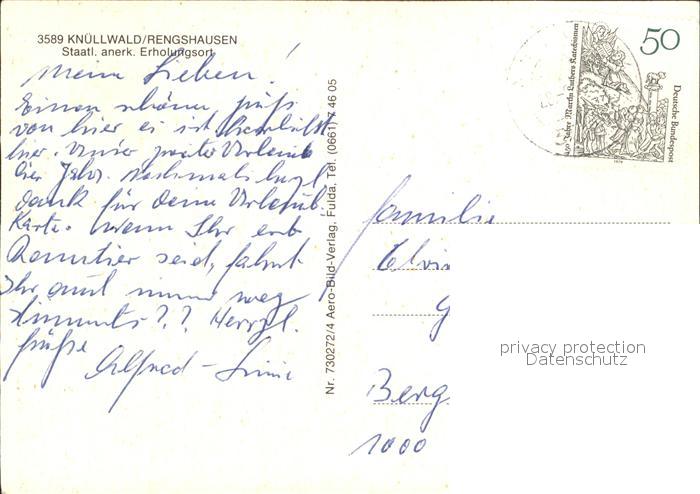 3589 KNÜLLWALD/RENGSHAUSEN
Staatl. anerk. Erholungsort
Meine Lieben!
Einen schönen
von hier es ist herrlich
hier. Unser zweiter Urlaub
Jahr. Nochmals
dank für deine Urlaub
Karte. wenn Ihr erst
Renntier seid, fahrt
Ihr auch immer weg
stimmts?? Herzl.
Grüße
Alfred -
Nr. 730272/4 Aero-Bild-Verlag, Fulda, Tel. (0661) 7 46 05
50
Deutsche Bundespost
450 Jahre Martin Luthers Katechismus
Familie
Berg
1000
privacy protection
Datenschutz